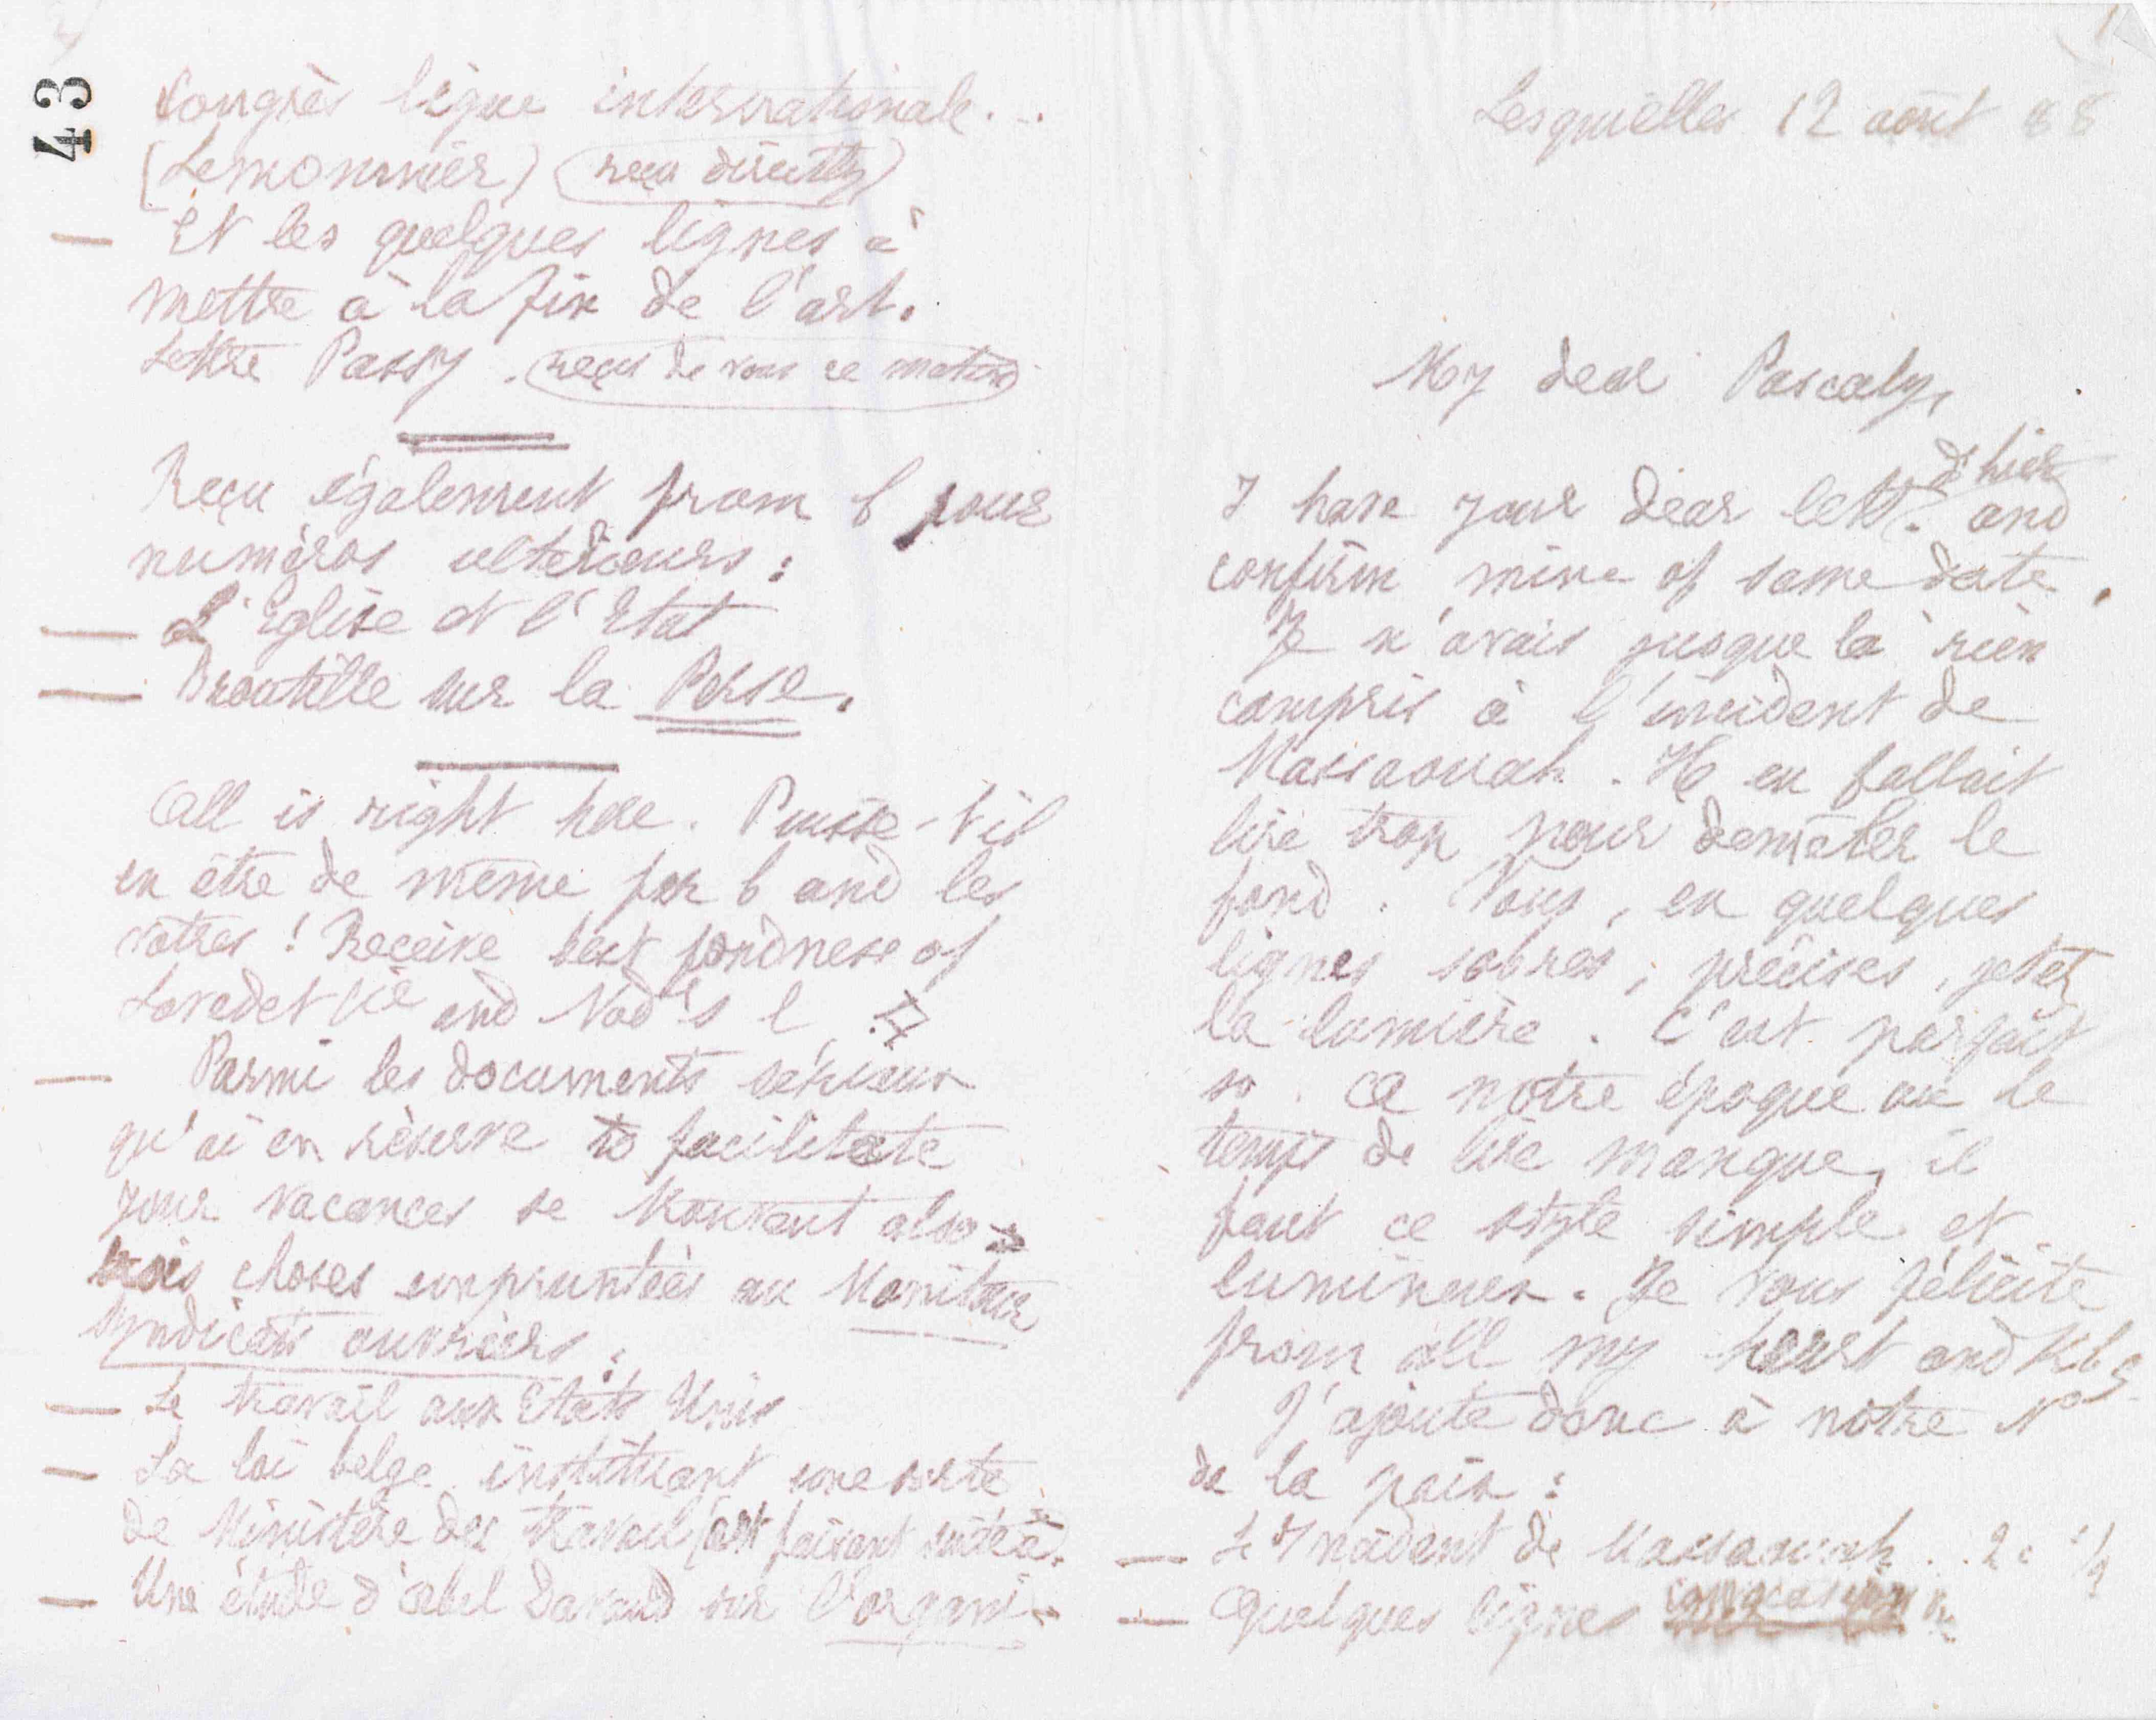 Lesquielles 12 août 88
My dear Pascaly,
d'hier
I have your dear lettr. and
confirm mine of same date.
Je n'avais jusque là rien
compris à l'incident de
Massaouah. Il en fallait
lire trop pour démêler le
fond. Vous, en quelques
lignes sobres, précises, jetez
la lumière. C'est parfait
so. A notre époque où le
temps de lire manque, il
faut ce style simple et
lumineux. Je vous félicite
from all my heart and
J'ajoute donc à notre No
de la paix :
— L'Incident de Massaouah .. 2 c 1/2
— Quelques lignes
43
Congrès ligue internationale...
(Lemonnier) (reçu directly)
— Et les quelques lignes à
mettre à la fin de l'art.
Lettre Passy. (reçus de vous ce matin)
Reçu également from b pour
numéros ultérieurs :
— L'Eglise et l'Etat
— Broutille sur la Perse.
All is right here. Puisse-t'il
en être de même for b and les
vôtres ! Receive best fondness of
and
— Parmi les documents sérieux
qu'ai en réserve to facilitate
your vacances se trouvent also
trois choses empruntées au Moniteur
Syndicats ouvriers :
— Le travail aux Etats Unis
— La loi belge instituant une sorte
de Ministère du Travail (art faisant suite à
— Une étude d'Abel Davaud sur l'organi-